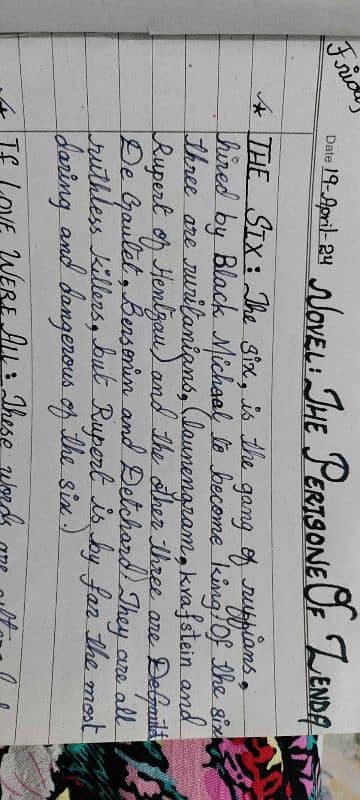 Friday
Date 19-April-24
NOVEL: THE PERISONE OF ZENDA
THE SIX: The six, is the gang of ruppians,
hired by Black Micheal to become king! Of the six
three are ruritanians, (launengram, krafstein and
Rupert of Hentzau) and the other three are
De Gaulet, Bersonin and Detchard) They are all
ruthless killers, but Rupert is by far the most
daring and dangerous of the six.)
IF LOVE WERE ALL: These words are